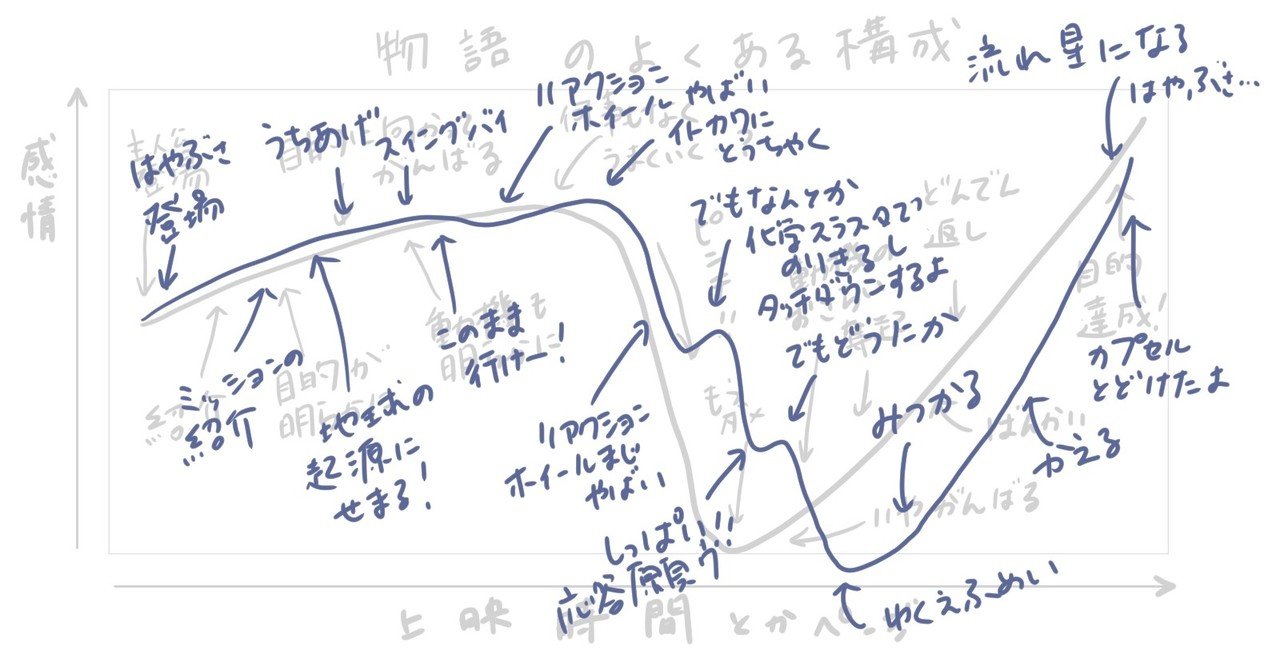 物語のよくある構成
感情
はやぶさ
登場
うちあげ
スイングバイ
リアクション
ホイール やばい
イトカワに
とうちゃく
流れ星になる
はやぶさ…
でもなんとか
化学スラスタで
のりきるし
タッチダウンするよ
どんでん
返し
ミッションの
紹介
目的が
地球の
起源に
せまる！
このまま
行けー！
リアクション
ホイールまじ
やばい
でもどうにか
目的
達成！
カプセル
とどけたよ
みつかる
ばんかい
かえる
いやがんばる
しっぱい!!
ゆくえふめい
上映時間とか